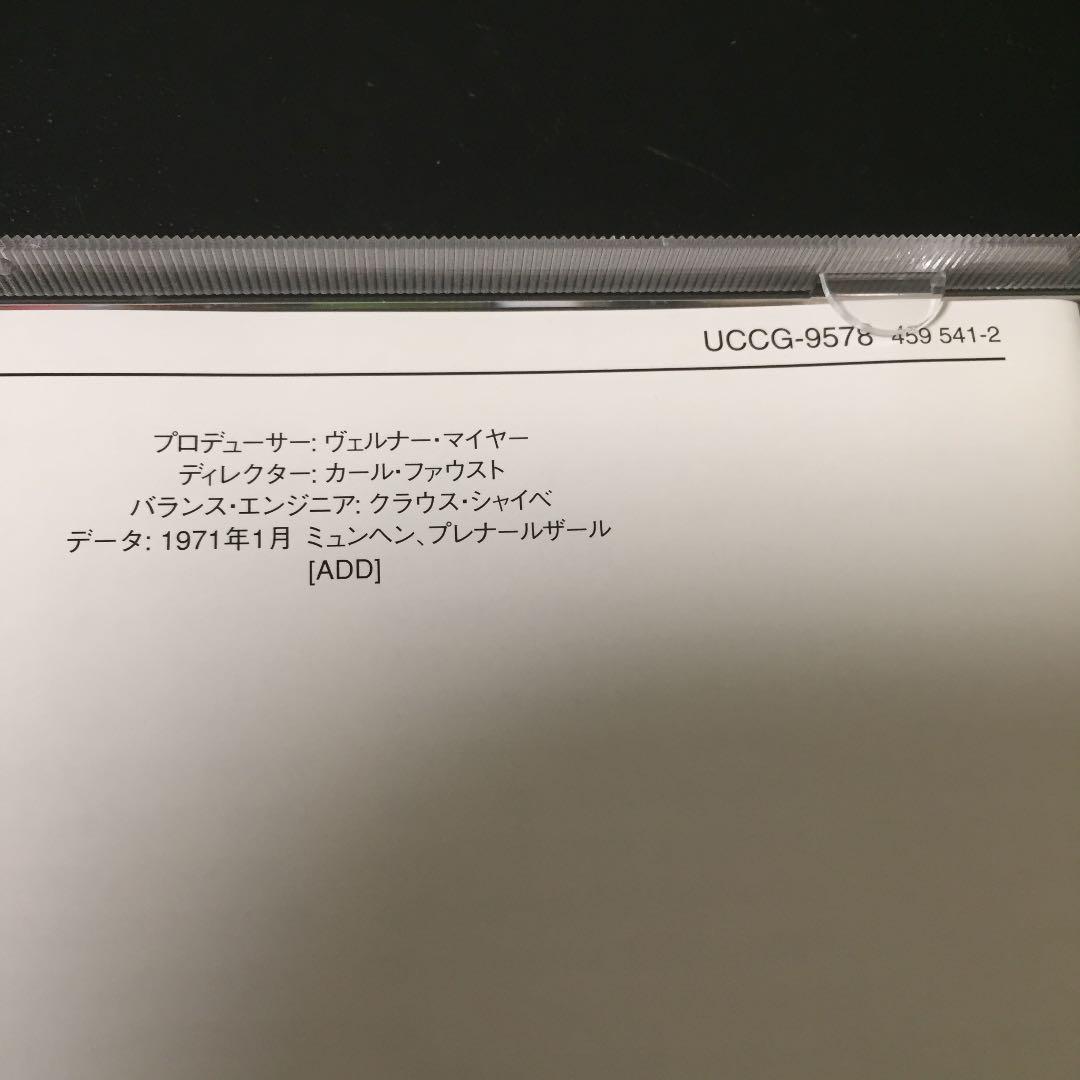 UCCG-9578 459 541-2
プロデューサー: ヴェルナー・マイヤー
ディレクター: カール・ファウスト
バランス・エンジニア: クラウス・シャイベ
データ: 1971年1月 ミュンヘン、プレナールザール
[ADD]